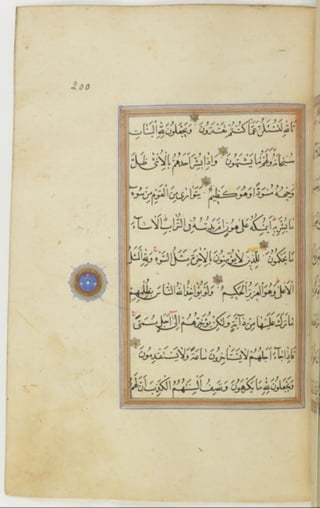 200
تالله لتسئلن عما كنتم تفترون ويجعلون لله البنات
سبحانه ولهم ما يشتهون واذا بشر احدهم بالانثى ظل
وجهه مسودا وهو كظيم يتوارى من القوم من سوء
ما بشر به ايمسكه على هون ام يدسه في التراب الا ساء
ما يحكمون للذين لا يؤمنون بالاخرة مثل السوء ولله المثل
الاعلى وهو العزيز الحكيم ولو يؤاخذ الله الناس بظلمهم
ما ترك عليها من دابة ولكن يؤخرهم الى اجل مسمى
فاذا جاء اجلهم لا يستاخرون ساعة ولا يستقدمون
ويجعلون لله ما يكرهون وتصف السنتهم الكذب ان لهم